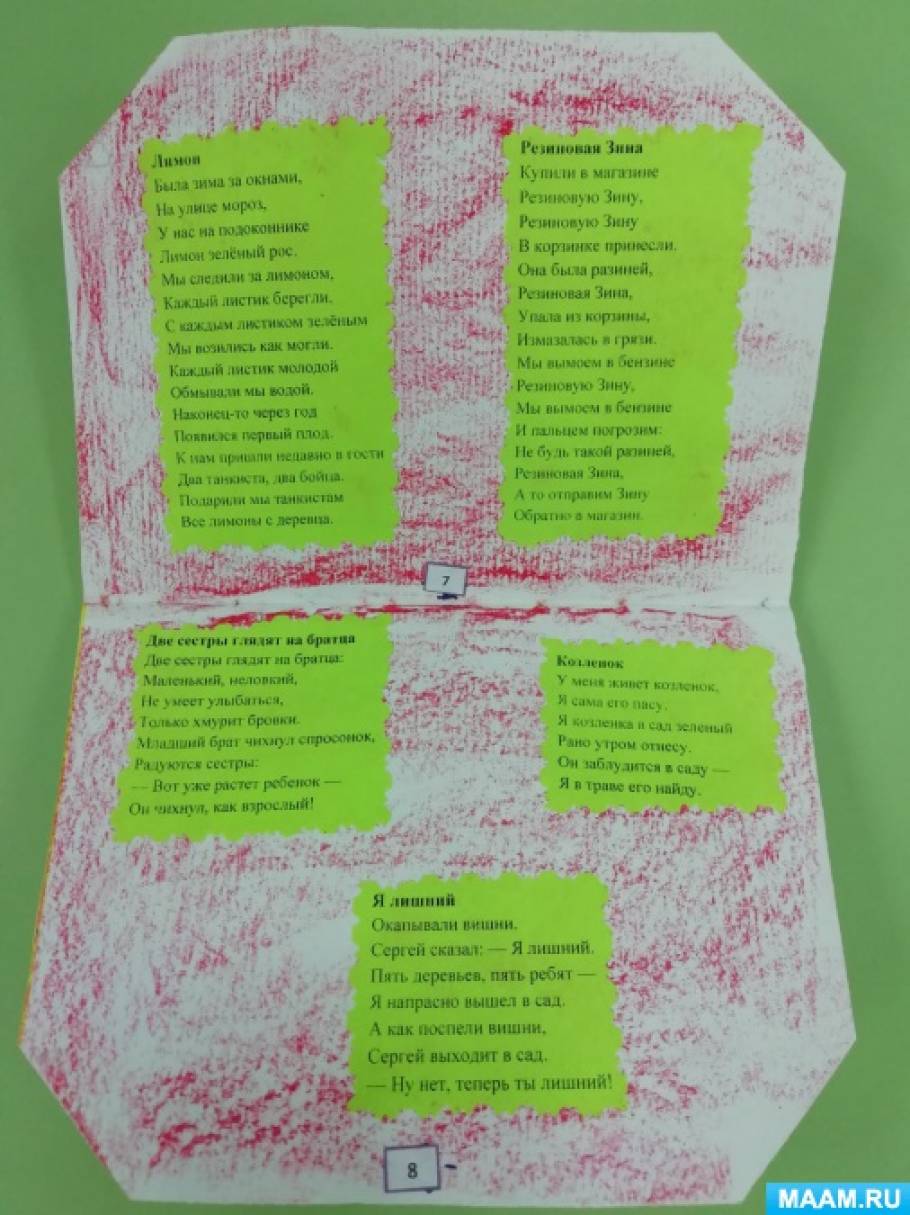 Лимон
Была зима за окнами,
На улице мороз,
У нас на подоконнике
Лимон зелёный рос.
Мы следили за лимоном,
Каждый листик берегли,
С каждым листиком зелёным
Мы возились как могли.
Каждый листик молодой
Обмывали мы водой.
Наконец-то через год
Появился первый плод.
К нам пришли недавно в гости
Два танкиста, два бойца.
Подарили мы танкистам
Все лимоны с деревца.
Резиновая Зина
Купили в магазине
Резиновую Зину,
Резиновую Зину
В корзинке принесли.
Она была разиней,
Резиновая Зина,
Упала из корзины,
Измазалась в грязи.
Мы вымоем в бензине
Резиновую Зину,
Мы вымоем в бензине
И пальцем погрозим:
Не будь такой разиней,
Резиновая Зина,
А то отправим Зину
Обратно в магазин.
7
Две сестры глядят на братца
Две сестры глядят на братца:
Маленький, неловкий,
Не умеет улыбаться,
Только хмурит бровки.
Младший брат чихнул спросонок,
Радуются сестры:
— Вот уже растет ребенок —
Он чихнул, как взрослый!
Козленок
У меня живет козленок,
Я сама его пасу.
Я козленка в сад зеленый
Рано утром отнесу.
Он заблудится в саду —
Я в траве его найду.
Я лишний
Окапывали вишни.
Сергей сказал: — Я лишний.
Пять деревьев, пять ребят —
Я напрасно вышел в сад.
А как поспели вишни,
Сергей выходит в сад.
— Ну нет, теперь ты лишний!
8
MAAM.RU